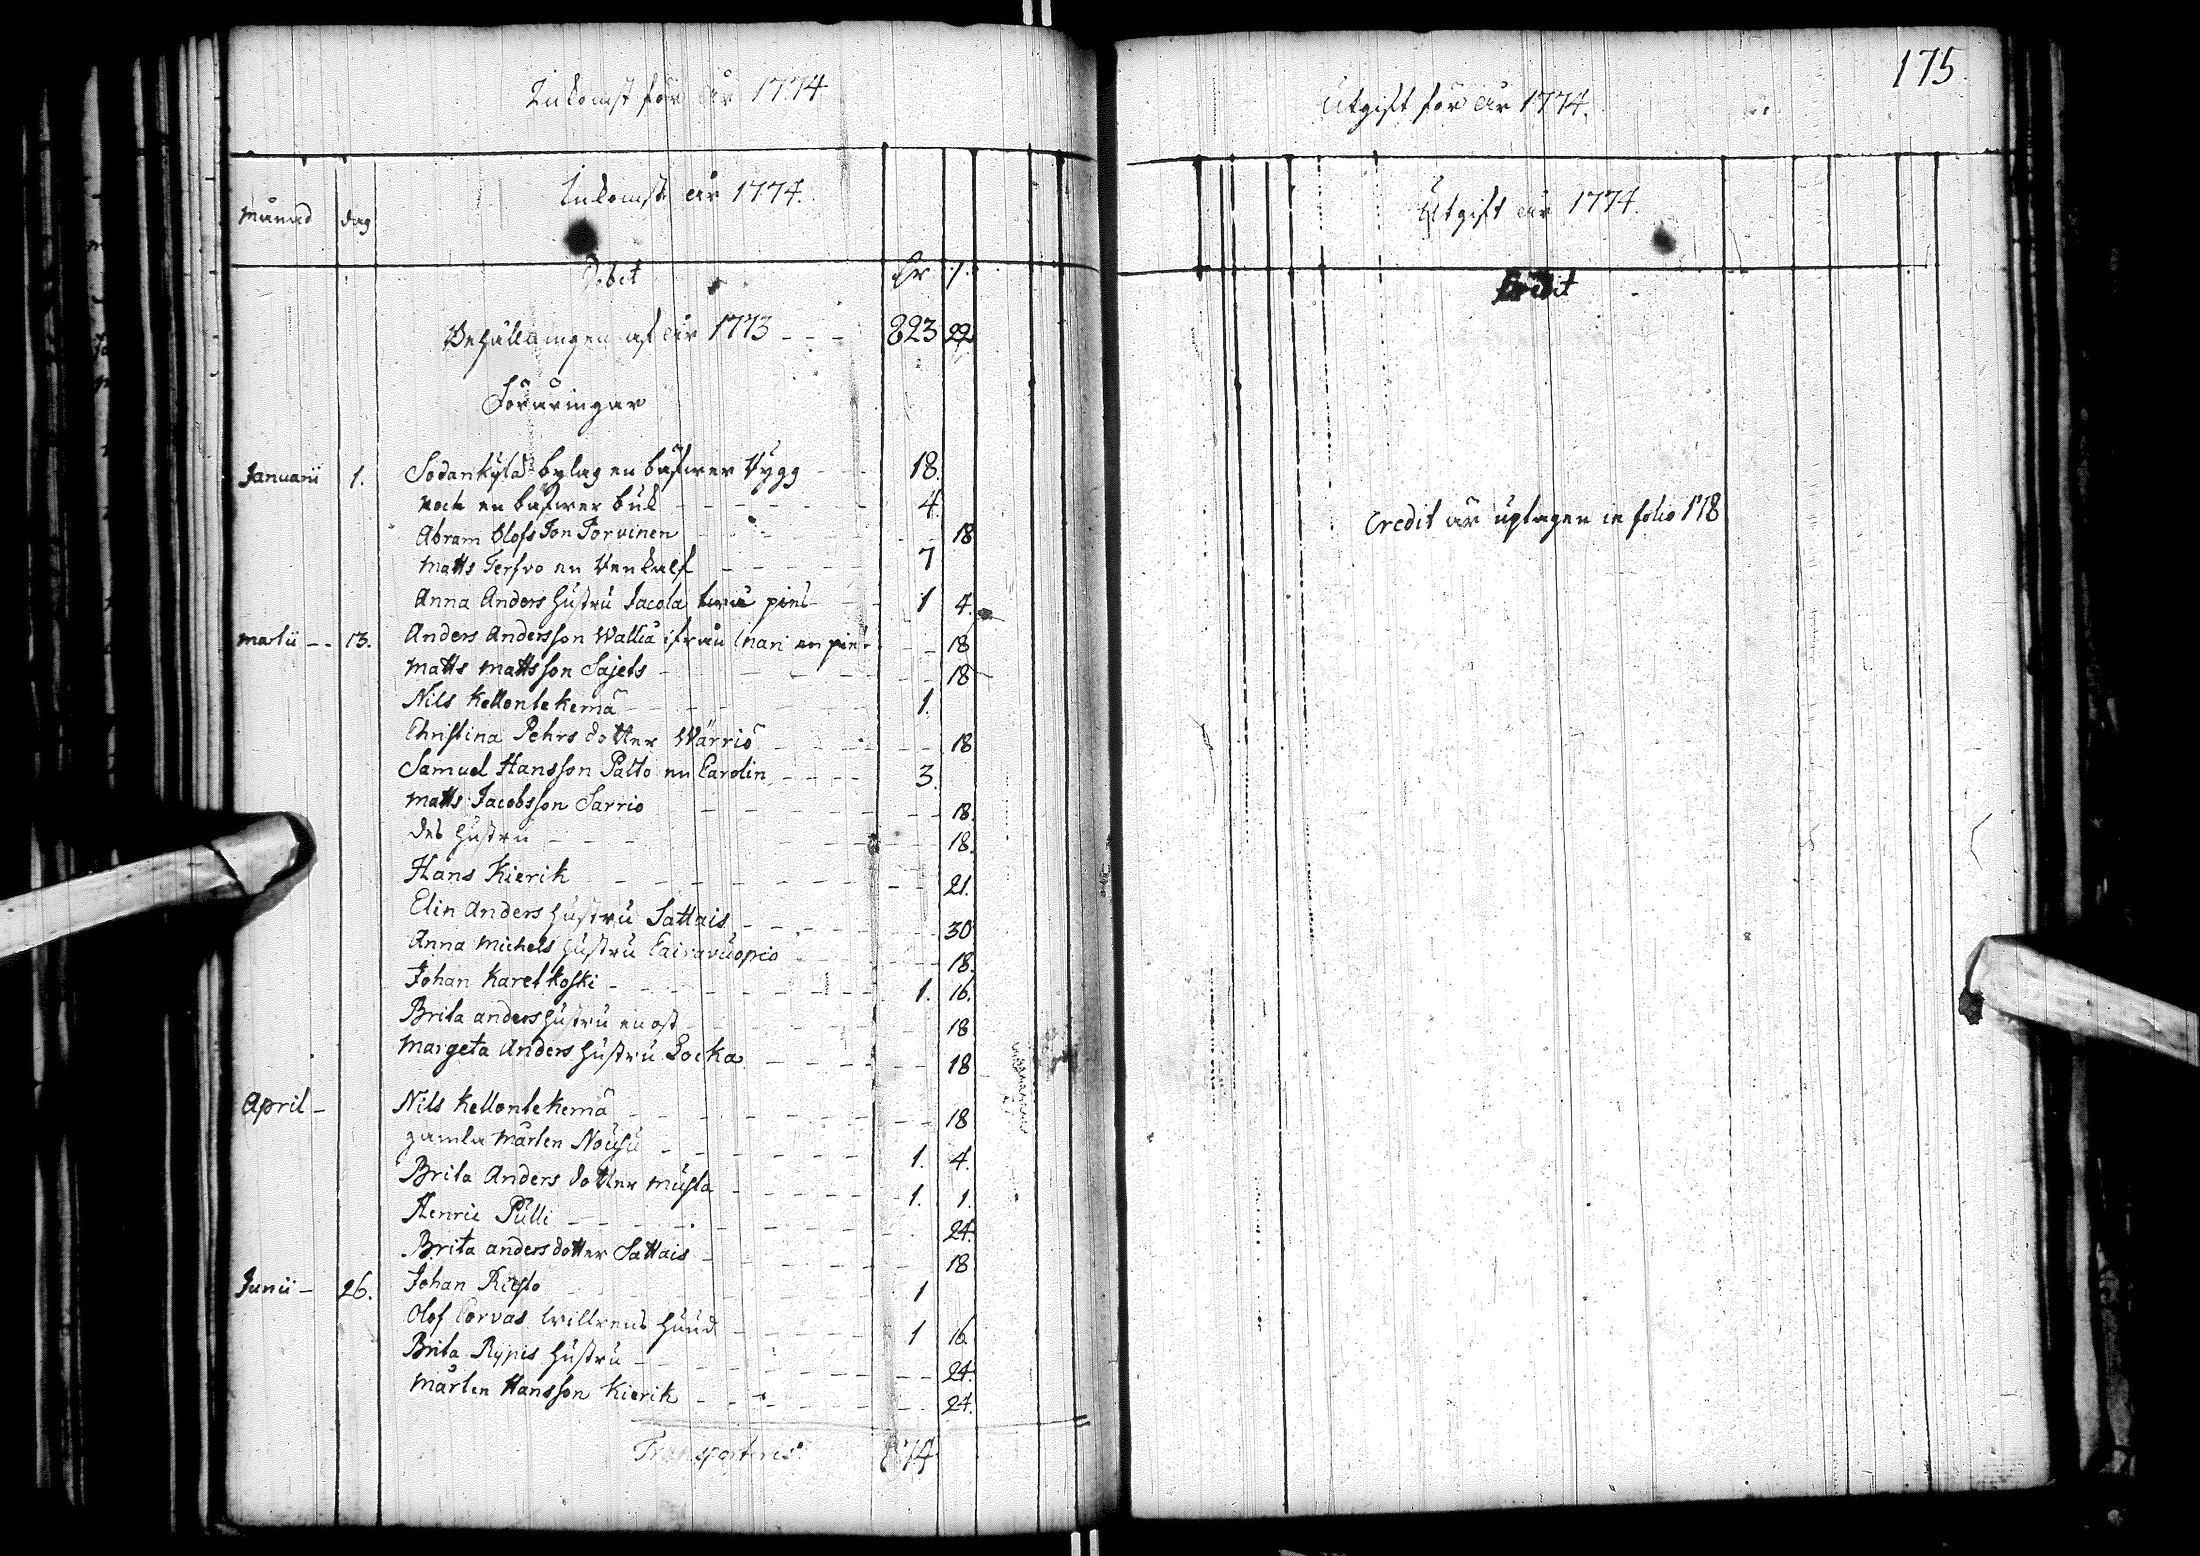 Inkomst för år 1774
Inkomst år 1774.
Månad dag
Debit
Behållningen af år 1773 - - - 823 22
Föräringar
Januarii 1. Sodankylä bylag en bäfwer Rygg - - 18.
noch en bäfwer buk - - - - 4
Abram Olofs Son Torvinen - - - 18
Matts Terfvo en Renkalf - - - - 7
Anna Anders Hustru Jacola - - 1 4.
Martii - - 13. Anders Andersson Wallia ifrån Inari en - - 18
Matts Mattsson Sajets - - - - 18
Nils Kellontekemä - - - - 1.
Christina Pehrs dotter Wärriö - - - - 18
Samuel Hansson Palto en Carolin - - - - 3.
Matts Jacobsson Sarrio - - - - 18.
des Hustru - - - - 18.
Hans Kierik - - - - 21.
Elin Anders Hustru Sattais - - - - 30
Anna Michels Hustru Cairavuopio - - - 18.
Johan Karelkoski - - - - 1. 16.
Brita anders hustru en ost - - - - 18
Margeta Anders Hustru Pocka - - - - 18
April - Nils Kellontekemä - - - - 18
gamla Mårten Nousu - - - - 1. 4.
Brita Anders dotter Musta - - - - 1. 1.
Henric Pulli - - - - 24.
Brita andersdotter Sattais - - - - 18
Junii - 26. Johan Riesto - - - - 1
Olof Corvas Hund - - - - 1 16.
Brita Rypis Hustru - - - - 24.
Mårten Hansson Kierik - - - - 24.
Transporteres 874
175
Utgift för år 1774.
Utgift år 1774.
Credit
Credit är uptagen in folio 178